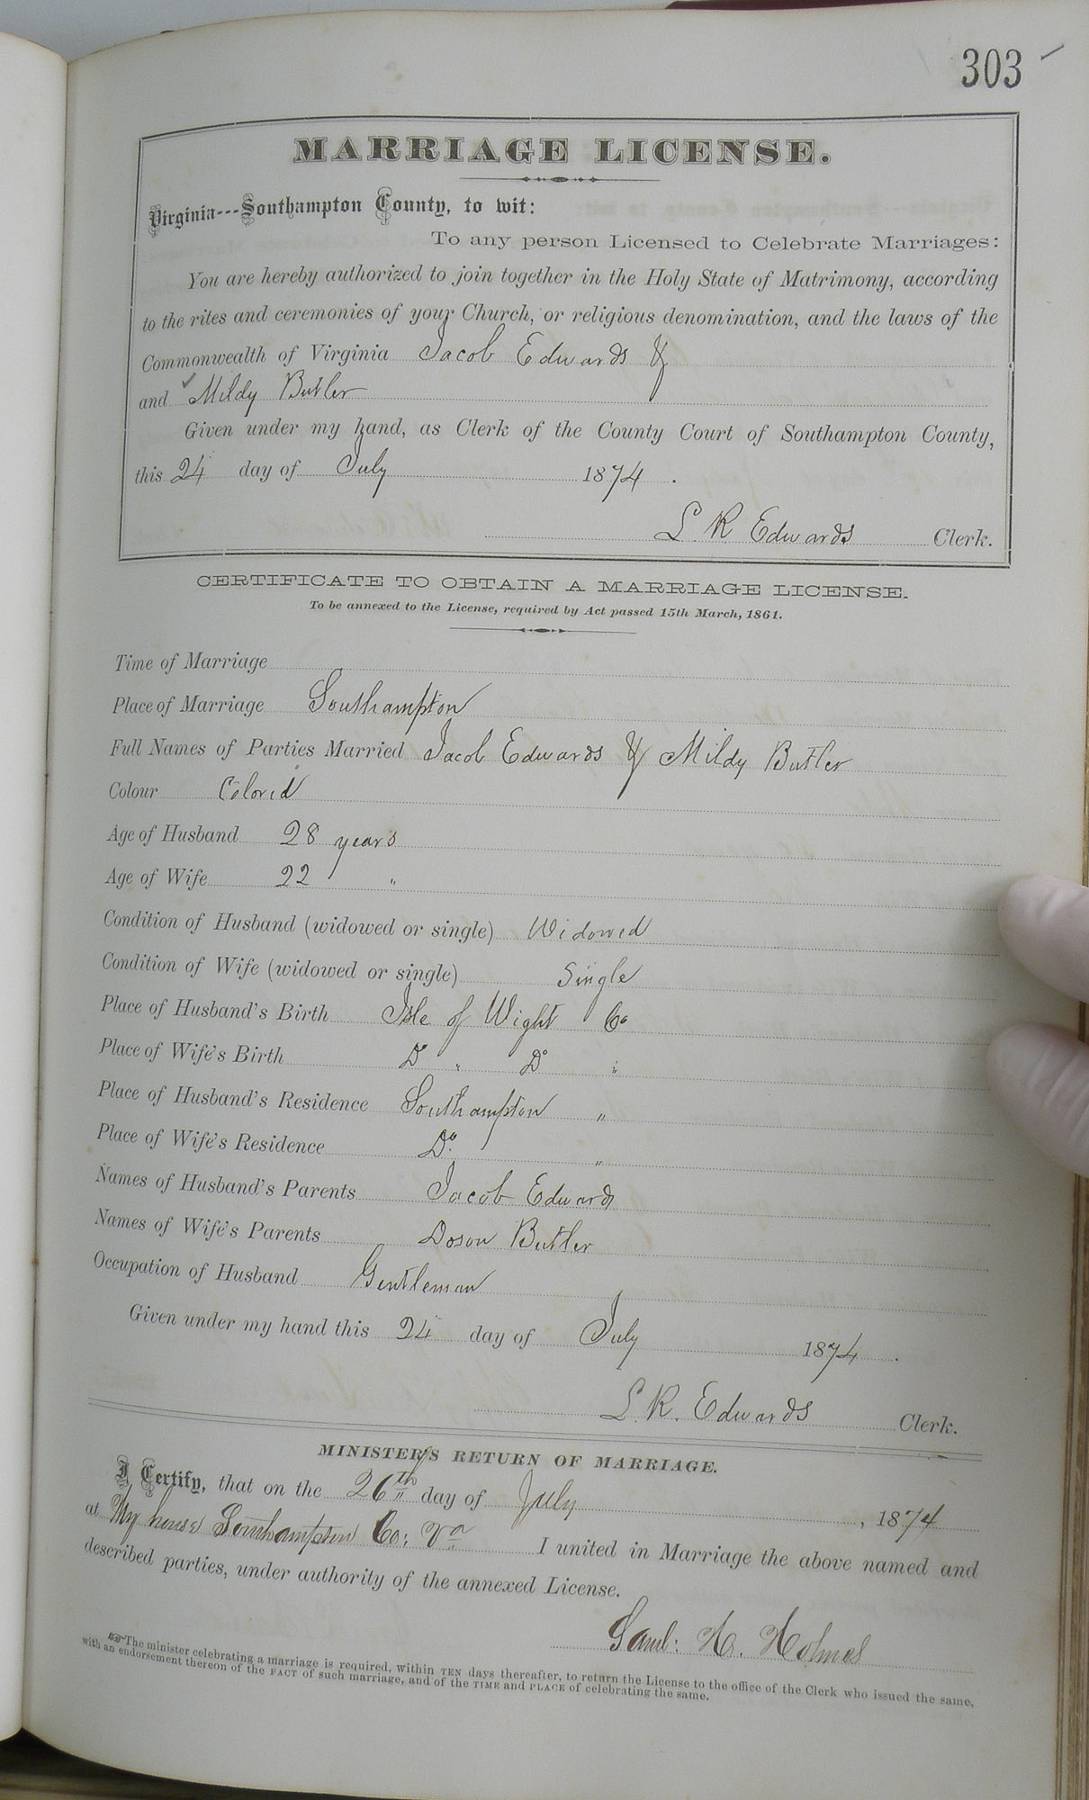 303
MARRIAGE LICENSE.
Virginia---Southampton County, to wit:
To any person Licensed to Celebrate Marriages:
You are hereby authorized to join together in the Holy State of Matrimony, according
to the rites and ceremonies of your Church, or religious denomination, and the laws of the
Commonwealth of Virginia Jacob Edwards &
and Mildy Butler
Given under my hand, as Clerk of the County Court of Southampton County,
this 24 day of July 1874.
L. R Edwards Clerk.
CERTIFICATE TO OBTAIN A MARRIAGE LICENSE.
To be annexed to the License, required by Act passed 15th March, 1861.
Time of Marriage
Place of Marriage Southampton
Full Names of Parties Married Jacob Edwards & Mildy Butler
Colour Colored
Age of Husband 28 years
Age of Wife 22 "
Condition of Husband (widowed or single) Widowed
Condition of Wife (widowed or single) Single
Place of Husband's Birth Isle of Wight Co
Place of Wife's Birth Do " Do "
Place of Husband's Residence Southampton "
Place of Wife's Residence Do. "
Names of Husband's Parents Jacob Edwards
Names of Wife's Parents Doson Butler
Occupation of Husband Gentleman
Given under my hand this 24 day of July 1874.
L. R. Edwards Clerk.
MINISTER'S RETURN OF MARRIAGE.
I Certify, that on the 26th day of July, 1874
at My house Southampton Co: Va I united in Marriage the above named and
described parties, under authority of the annexed License.
Saml: H. Holmes
☞The minister celebrating a marriage is required, within TEN days thereafter, to return the License to the office of the Clerk who issued the same,
with an endorsement thereon of the FACT of such marriage, and of the TIME and PLACE of celebrating the same.